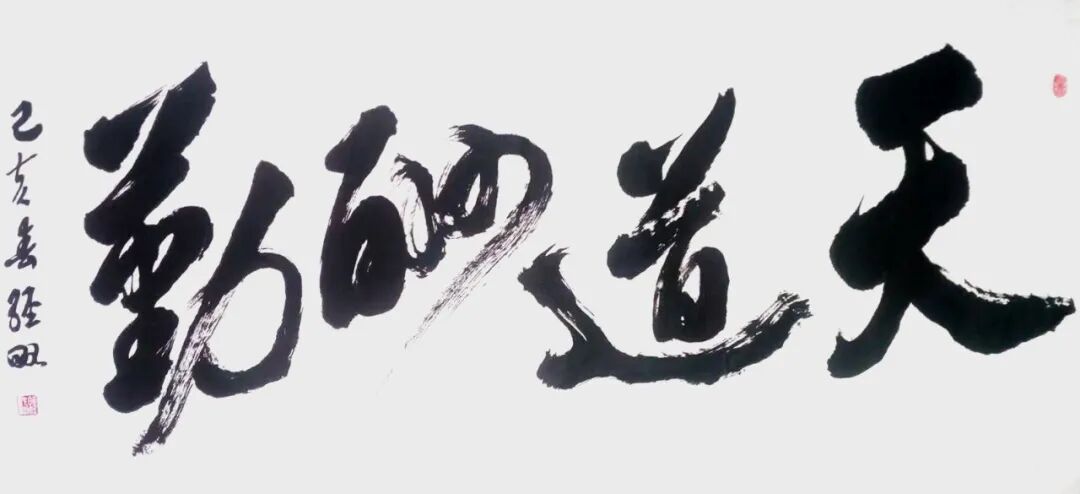 天道酬勤
己亥春